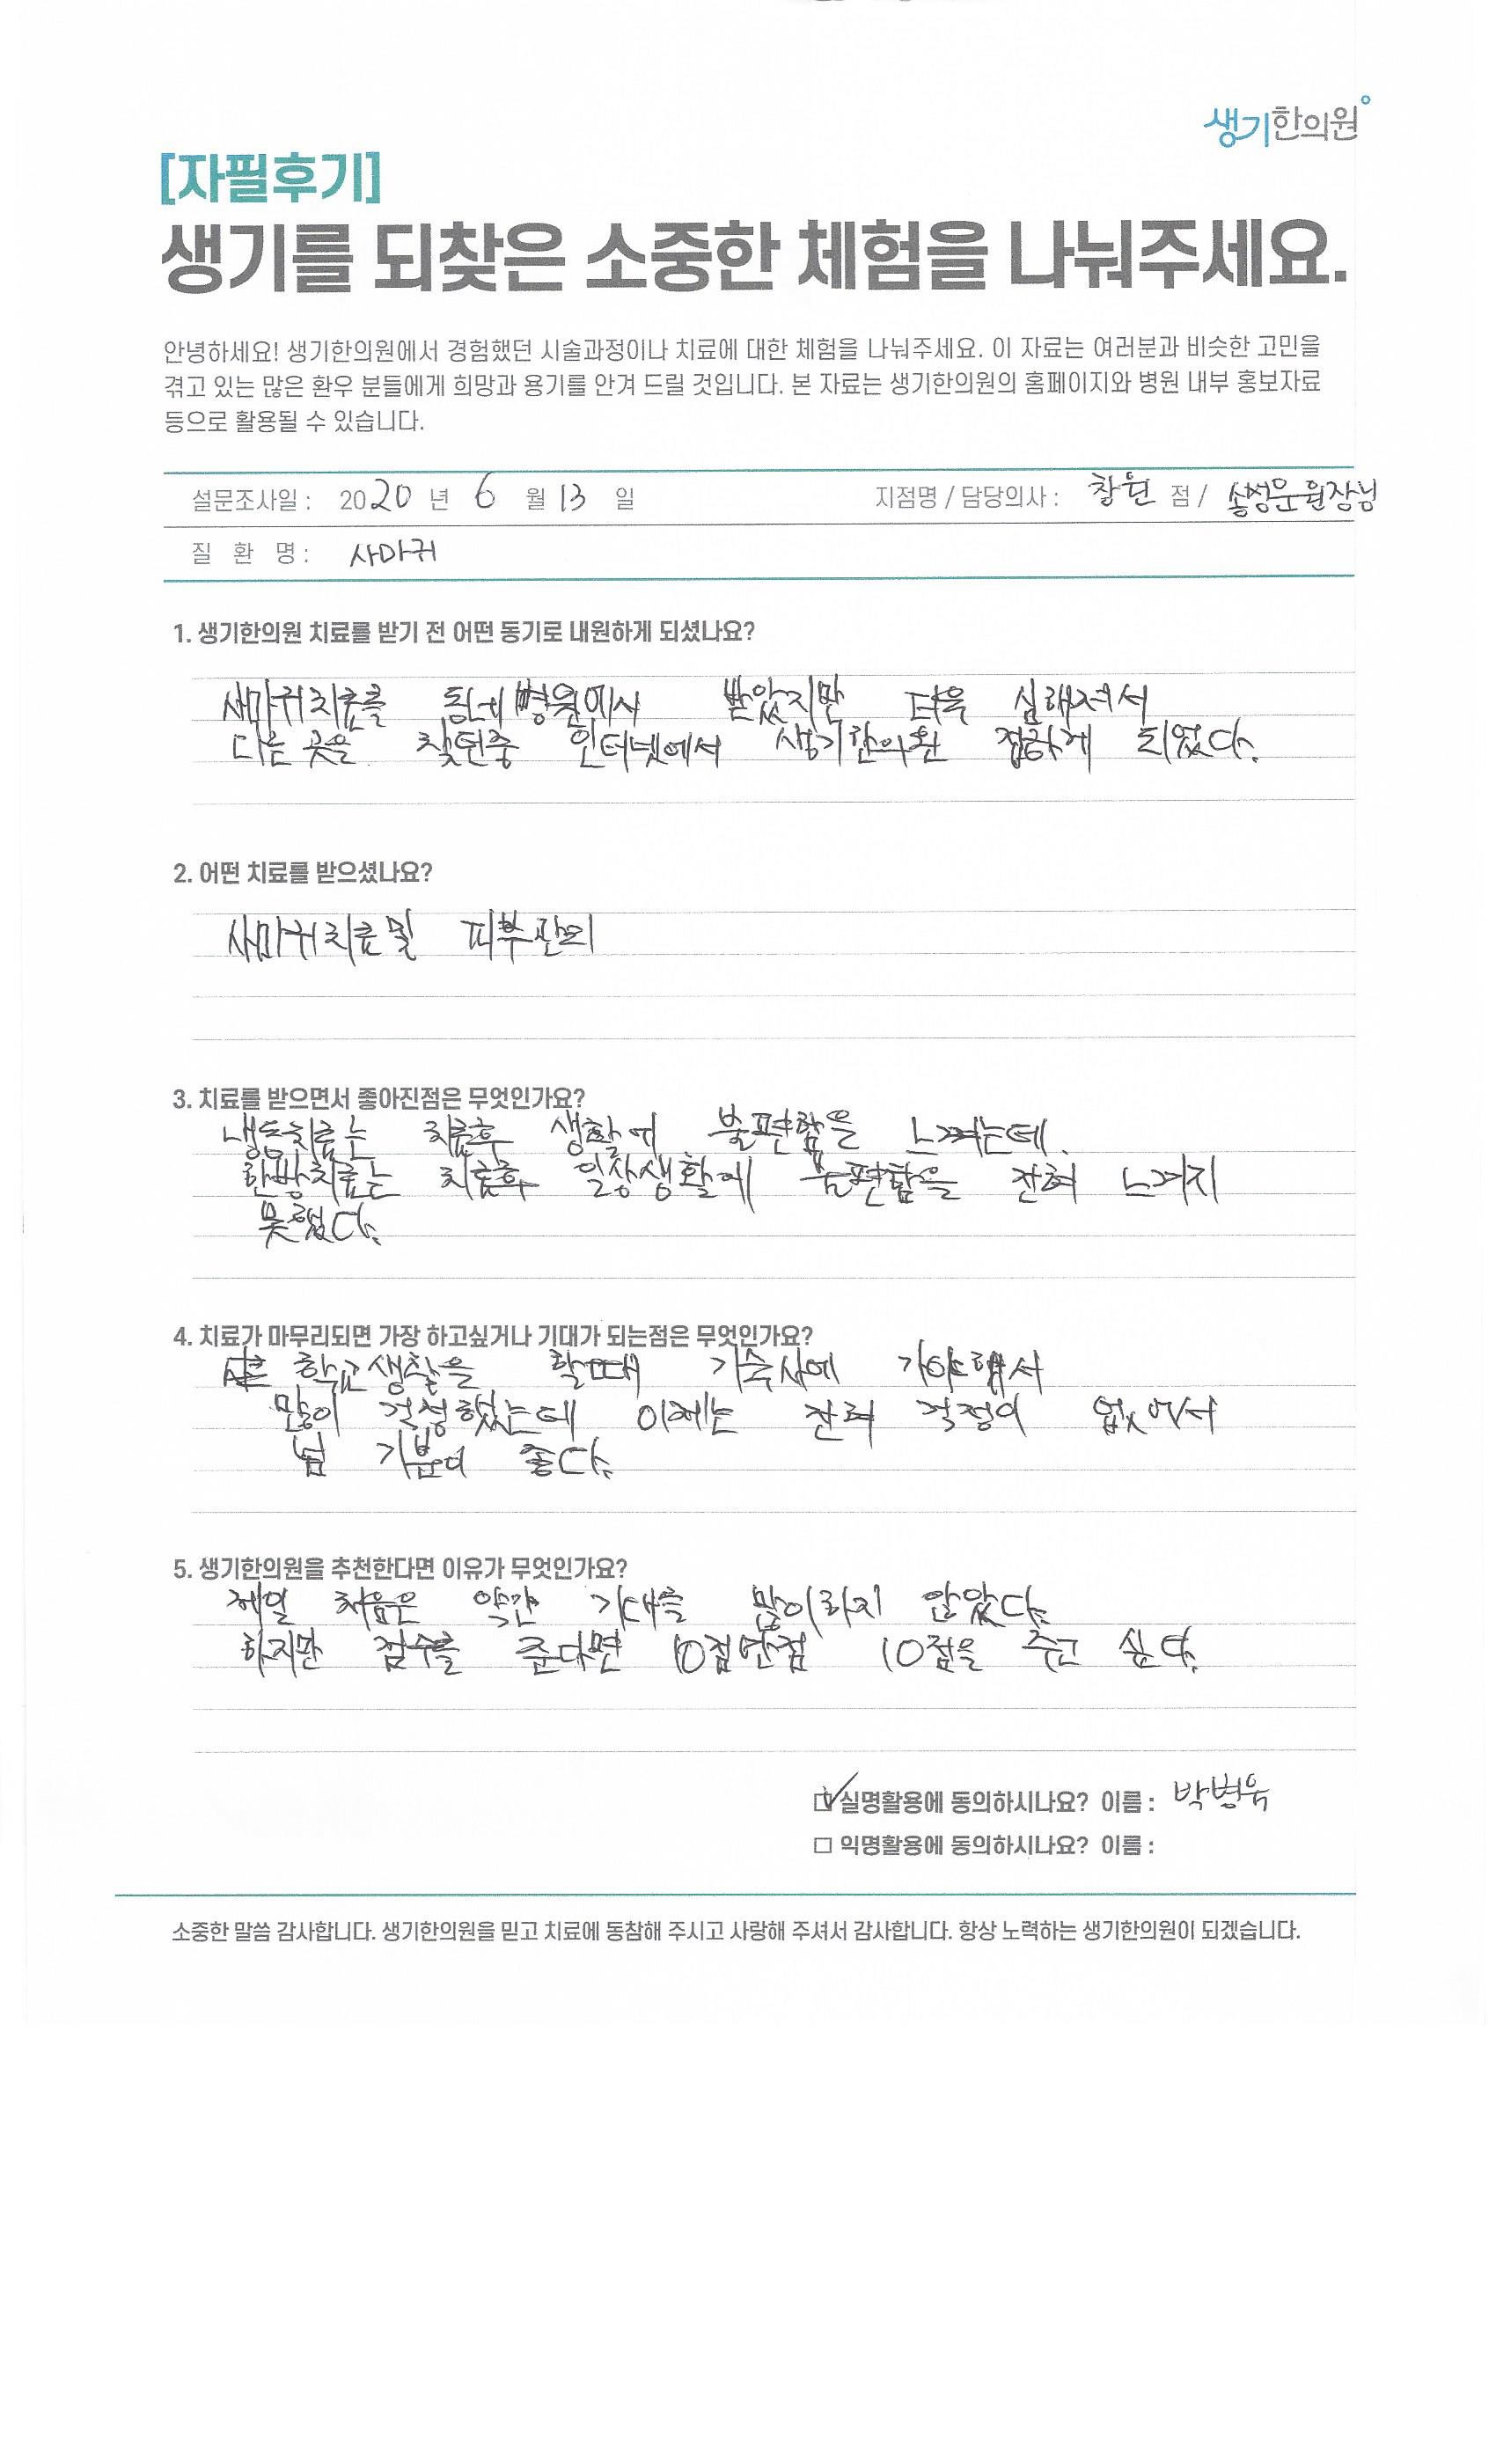 생기한의원
[자필후기]
생기를 되찾은 소중한 체험을 나눠주세요.
안녕하세요! 생기한의원에서 경험했던 시술과정이나 치료에 대한 체험을 나눠주세요. 이 자료는 여러분과 비슷한 고민을
겪고 있는 많은 환우 분들에게 희망과 용기를 안겨 드릴 것입니다. 본 자료는 생기한의원의 홈페이지와 병원 내부 홍보자료
등으로 활용될 수 있습니다.
설문조사일 : 2020 년 6 월 13 일 지점명 / 담당의사 : 창원 점 / 송성문원장님
질 환 명 : 사마귀
1. 생기한의원 치료를 받기 전 어떤 동기로 내원하게 되셨나요?
사마귀치료를 동네병원에서 받았지만 더욱 심해져서
다른 곳을 찾던중 인터넷에서 생기한의원 접하게 되었다.
2. 어떤 치료를 받으셨나요?
사마귀치료및 피부관리
3. 치료를 받으면서 좋아진점은 무엇인가요?
냉동치료는 치료후 생활에 불편함을 느꼈는데.
한방치료는 치료후 일상생활에 불편함을 전혀 느끼지
못했다.
4. 치료가 마무리되면 가장 하고싶거나 기대가 되는점은 무엇인가요?
학교생활을 할때 기숙사에 가야해서
많이 걱정했었는데 이제는 전혀 걱정이 없어서
넘 기분이 좋다.
5. 생기한의원을 추천한다면 이유가 무엇인가요?
제일 처음은 약간 기대를 많이하지 않았다.
하지만 점수를 준다면 10점만점 10점을 주고 싶다.
실명활용에 동의하시나요? 이름 : 박병욱
익명활용에 동의하시나요? 이름 :
소중한 말씀 감사합니다. 생기한의원을 믿고 치료에 동참해 주시고 사랑해 주셔서 감사합니다. 항상 노력하는 생기한의원이 되겠습니다.